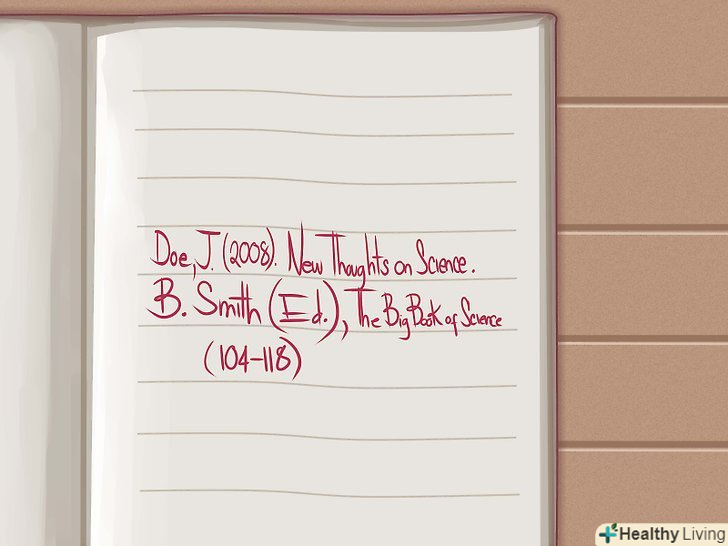 Doe, J. (2008). New Thoughts on Science.
B. Smith (Ed.), The Big Book of Science
(104-118)
Healthy Living